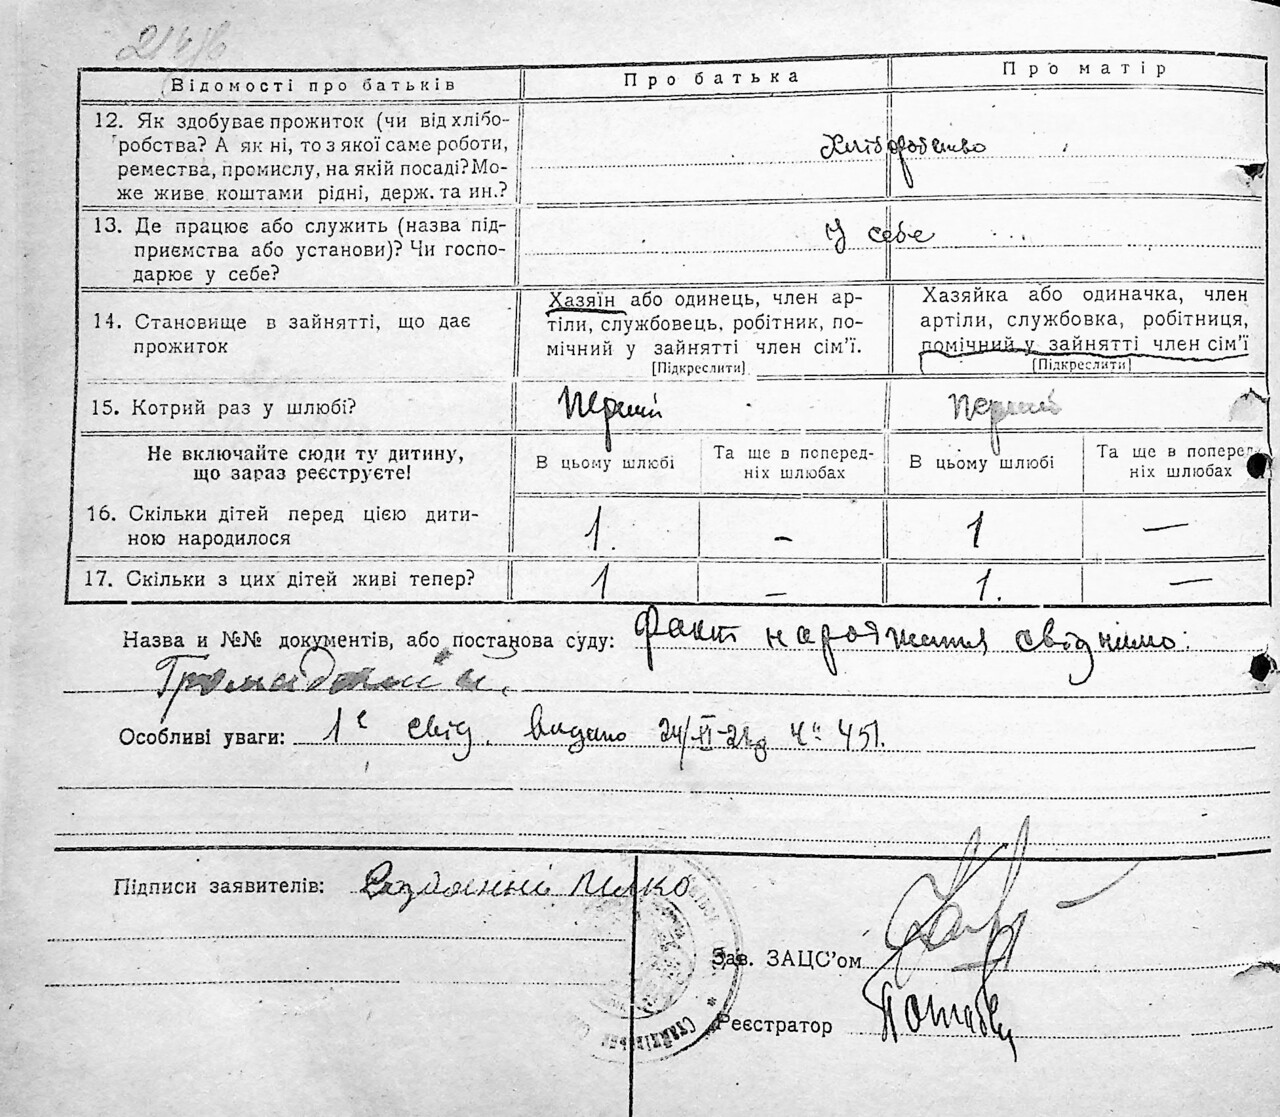 Відомості про батьків
Про батька
Про матір
12. Як здобуває прожиток (чи від хлібо-
робства? А як ні, то з якої саме роботи,
ремества, промислу, на якій посаді? Мо-
же живе коштами рідні, держ. та ин.?
Хліборобство
13. Де працює або служить (назва під-
приємства або установи)? Чи госпо-
дарює у себе?
У себе
14. Становище в зайнятті, що дає
прожиток
Хазяїн або одинець, член ар-
тіли, службовець, робітник, по-
мічний у зайнятті член сім'ї.
[Підкреслити]
Хазяйка або одиначка, член
артіли, службовка, робітниця,
помічний у зайнятті член сім'ї
[Підкреслити]
15. Котрий раз у шлюбі?
Перший
Перший
Не включайте сюди ту дитину,
що зараз реєструєте!
В цьому шлюбі
Та ще в поперед-
ніх шлюбах
В цьому шлюбі
Та ще в поперед-
ніх шлюбах
16. Скільки дітей перед цією дити-
ною народилося
1. - 1 —
17. Скільки з цих дітей живі тепер?
1 - 1. —
Назва и №№ документів, або постанова суду: Факт народження
Особливі уваги: свід. видано 451.
Підписи заявителів:
Зав. ЗАЦС'ом
Реєстратор